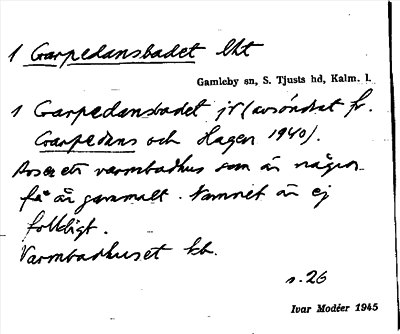 1 Garpedansbadet lht
Gamleby sn, S. Tjusts hd, Kalm. l.
1 Garpedansbadet jr (avsöndrat fr.
Garpedans och Hagen 1940).
Avser ett varmbadhus som är någon
få år gammalt. Namnet är ej
folkligt.
Varmbadhuset kb.
s. 26
Ivar Modéer 1945